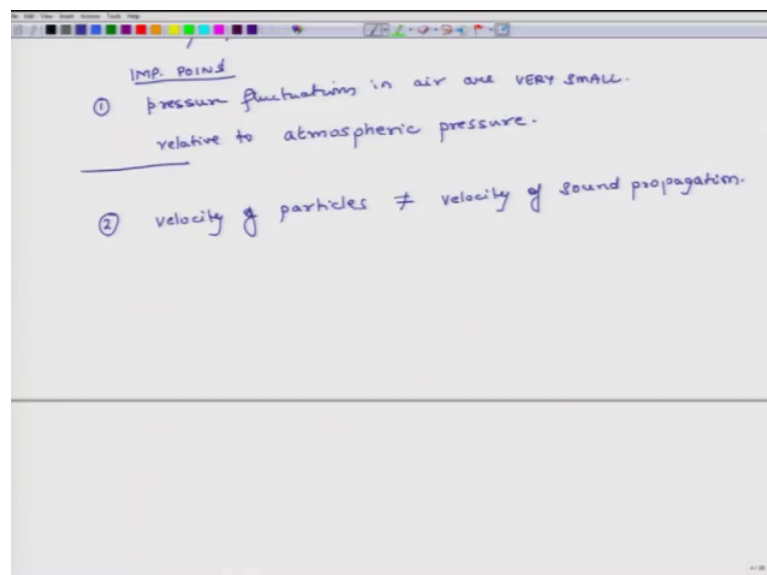 File Edit View Insert Actions Tools Help
IMP. POINS
① pressure fluctuations in air are VERY SMALL.
relative to atmospheric pressure.
② velocity of particles ≠ velocity of sound propagation.